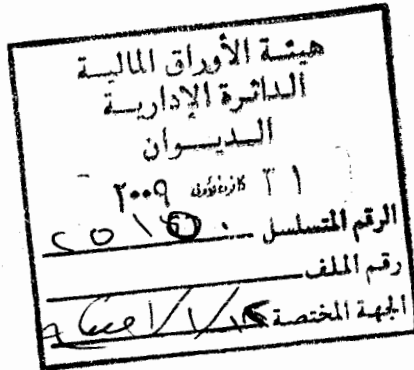 هيئة الأوراق المالية
الدائرة الإدارية
الديوان
٣١ كانون أول ٢٠٠٩
الرقم المتسلسل
رقم الملف
الجهة المختصة